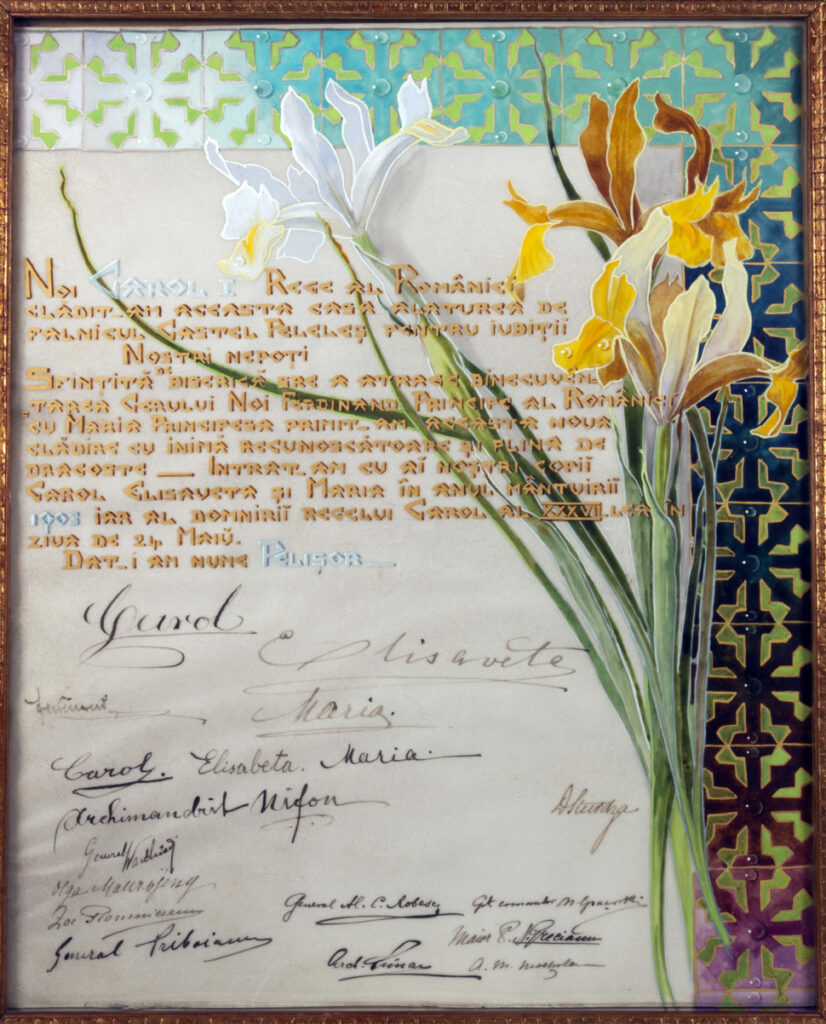 Noi Carol I Rege al României
clădit_am aceasta casă alăturea de
falnicul Castel Peleleș pentru iubiții
Noștri nepoți
Sfințită de biserică are a atrage binecuvên_
_tarea Cerului Noi Ferdinand Principe al României
cu Maria Principesa primit_am aceasta noua
clădire cu inimă recunoscătoare și plină de
dragoste _ Intrat_am cu aĭ noștri copii
Carol Elisaveta și Maria în anul mântuirii
1903 iar al domnirii regelui Carol al XXXVII_lea în
ziua de 24 Maiŭ.
Dat_i am nume Pelișor _
Carol
Elisaveta
Ferdinand
Maria.
Carol. Elisabeta. Maria.
Archimandrit Nifon
DSturdza
General
Olga Mavrojeny
Zoe
General Al. C. Robescu
General Priboianu
Maior P. Greceianu
Ard.
A. M.